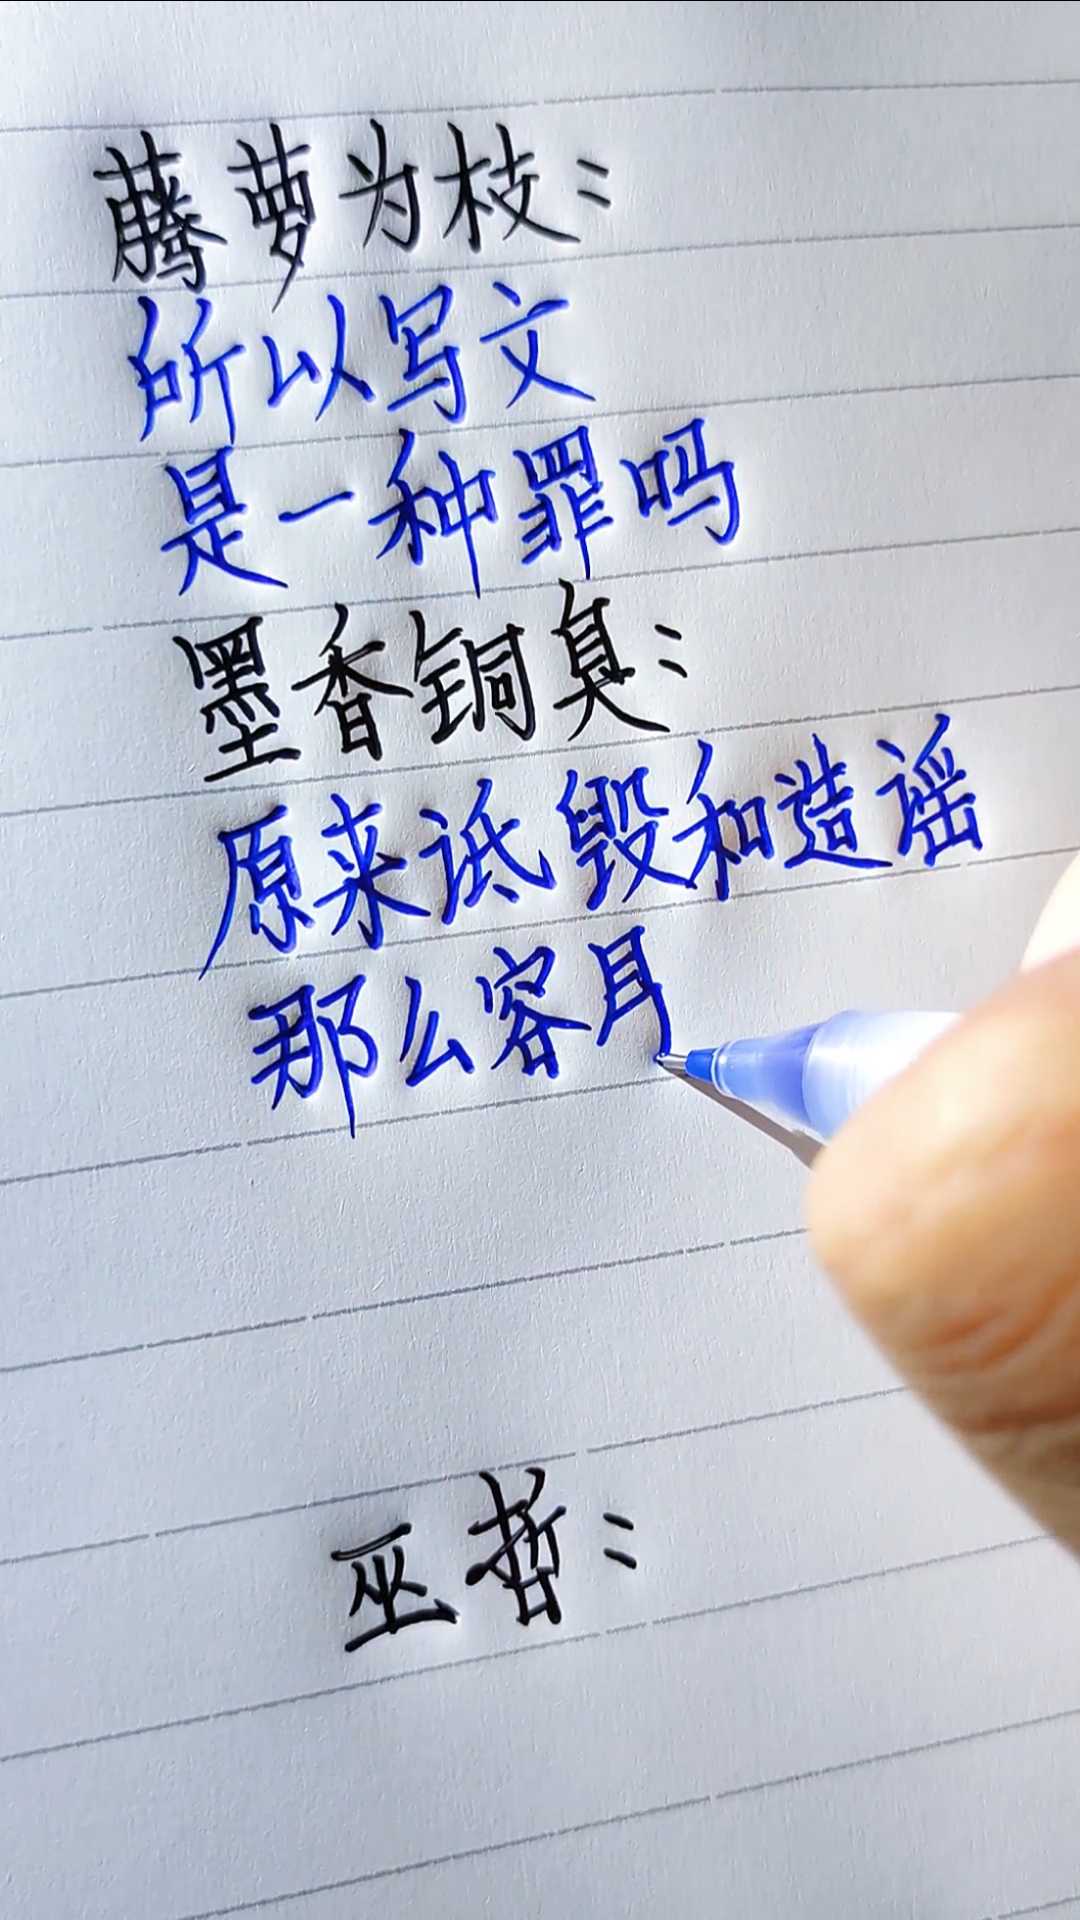 藤萝为枝：
所以写文
是一种罪吗
墨香铜臭：
原来诋毁和造谣
那么容
巫哲：